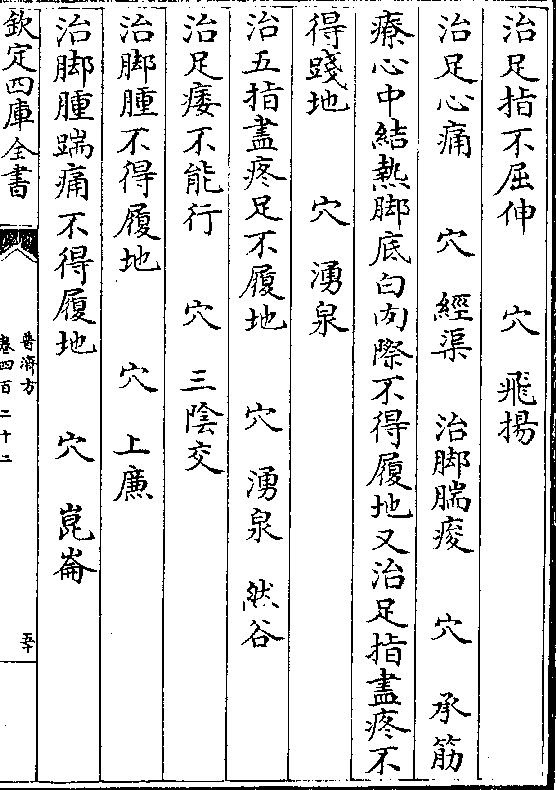 治足指不屈伸 穴 飛揚
治足心痛 穴 經渠 治脚腨痠 穴 承筋
療心中結熱脚底白肉際不得履地又治足指盡疼不
得踐地 穴 湧泉
治五指盡疼足不履地 穴 湧泉 然谷
治足痿不能行 穴 三陰交
治脚腫不得履地 穴 上廉
治脚腫踹痛不得履地 穴 崑崙
欽定四庫全書
普濟方
卷四百二十二
五十